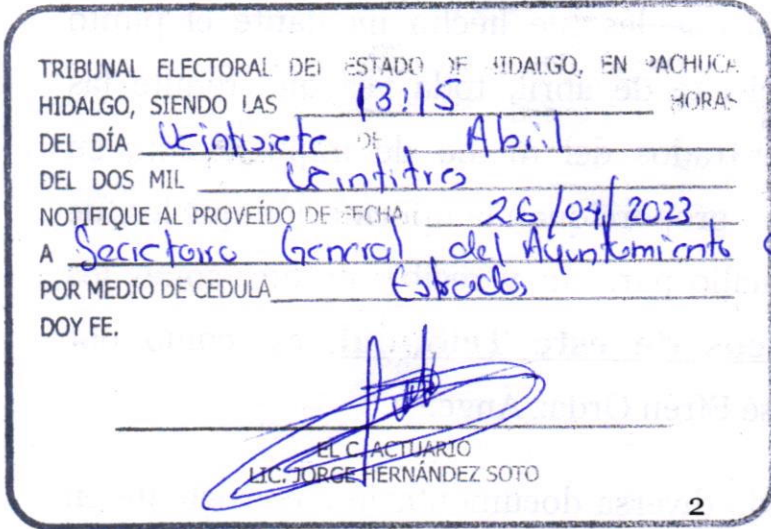 TRIBUNAL ELECTORAL DEL ESTADO DE HIDALGO, EN PACHUCA
HIDALGO, SIENDO LAS 13:15 HORAS
DEL DÍA Veintisiete DE Abril
DEL DOS MIL Veintitres
NOTIFIQUE AL PROVEÍDO DE FECHA 26/04/2023
A Secretario General del Ayuntamiento
POR MEDIO DE CEDULA Estrados
DOY FE.
EL C. ACTUARIO
LIC. JORGE HERNÁNDEZ SOTO
2